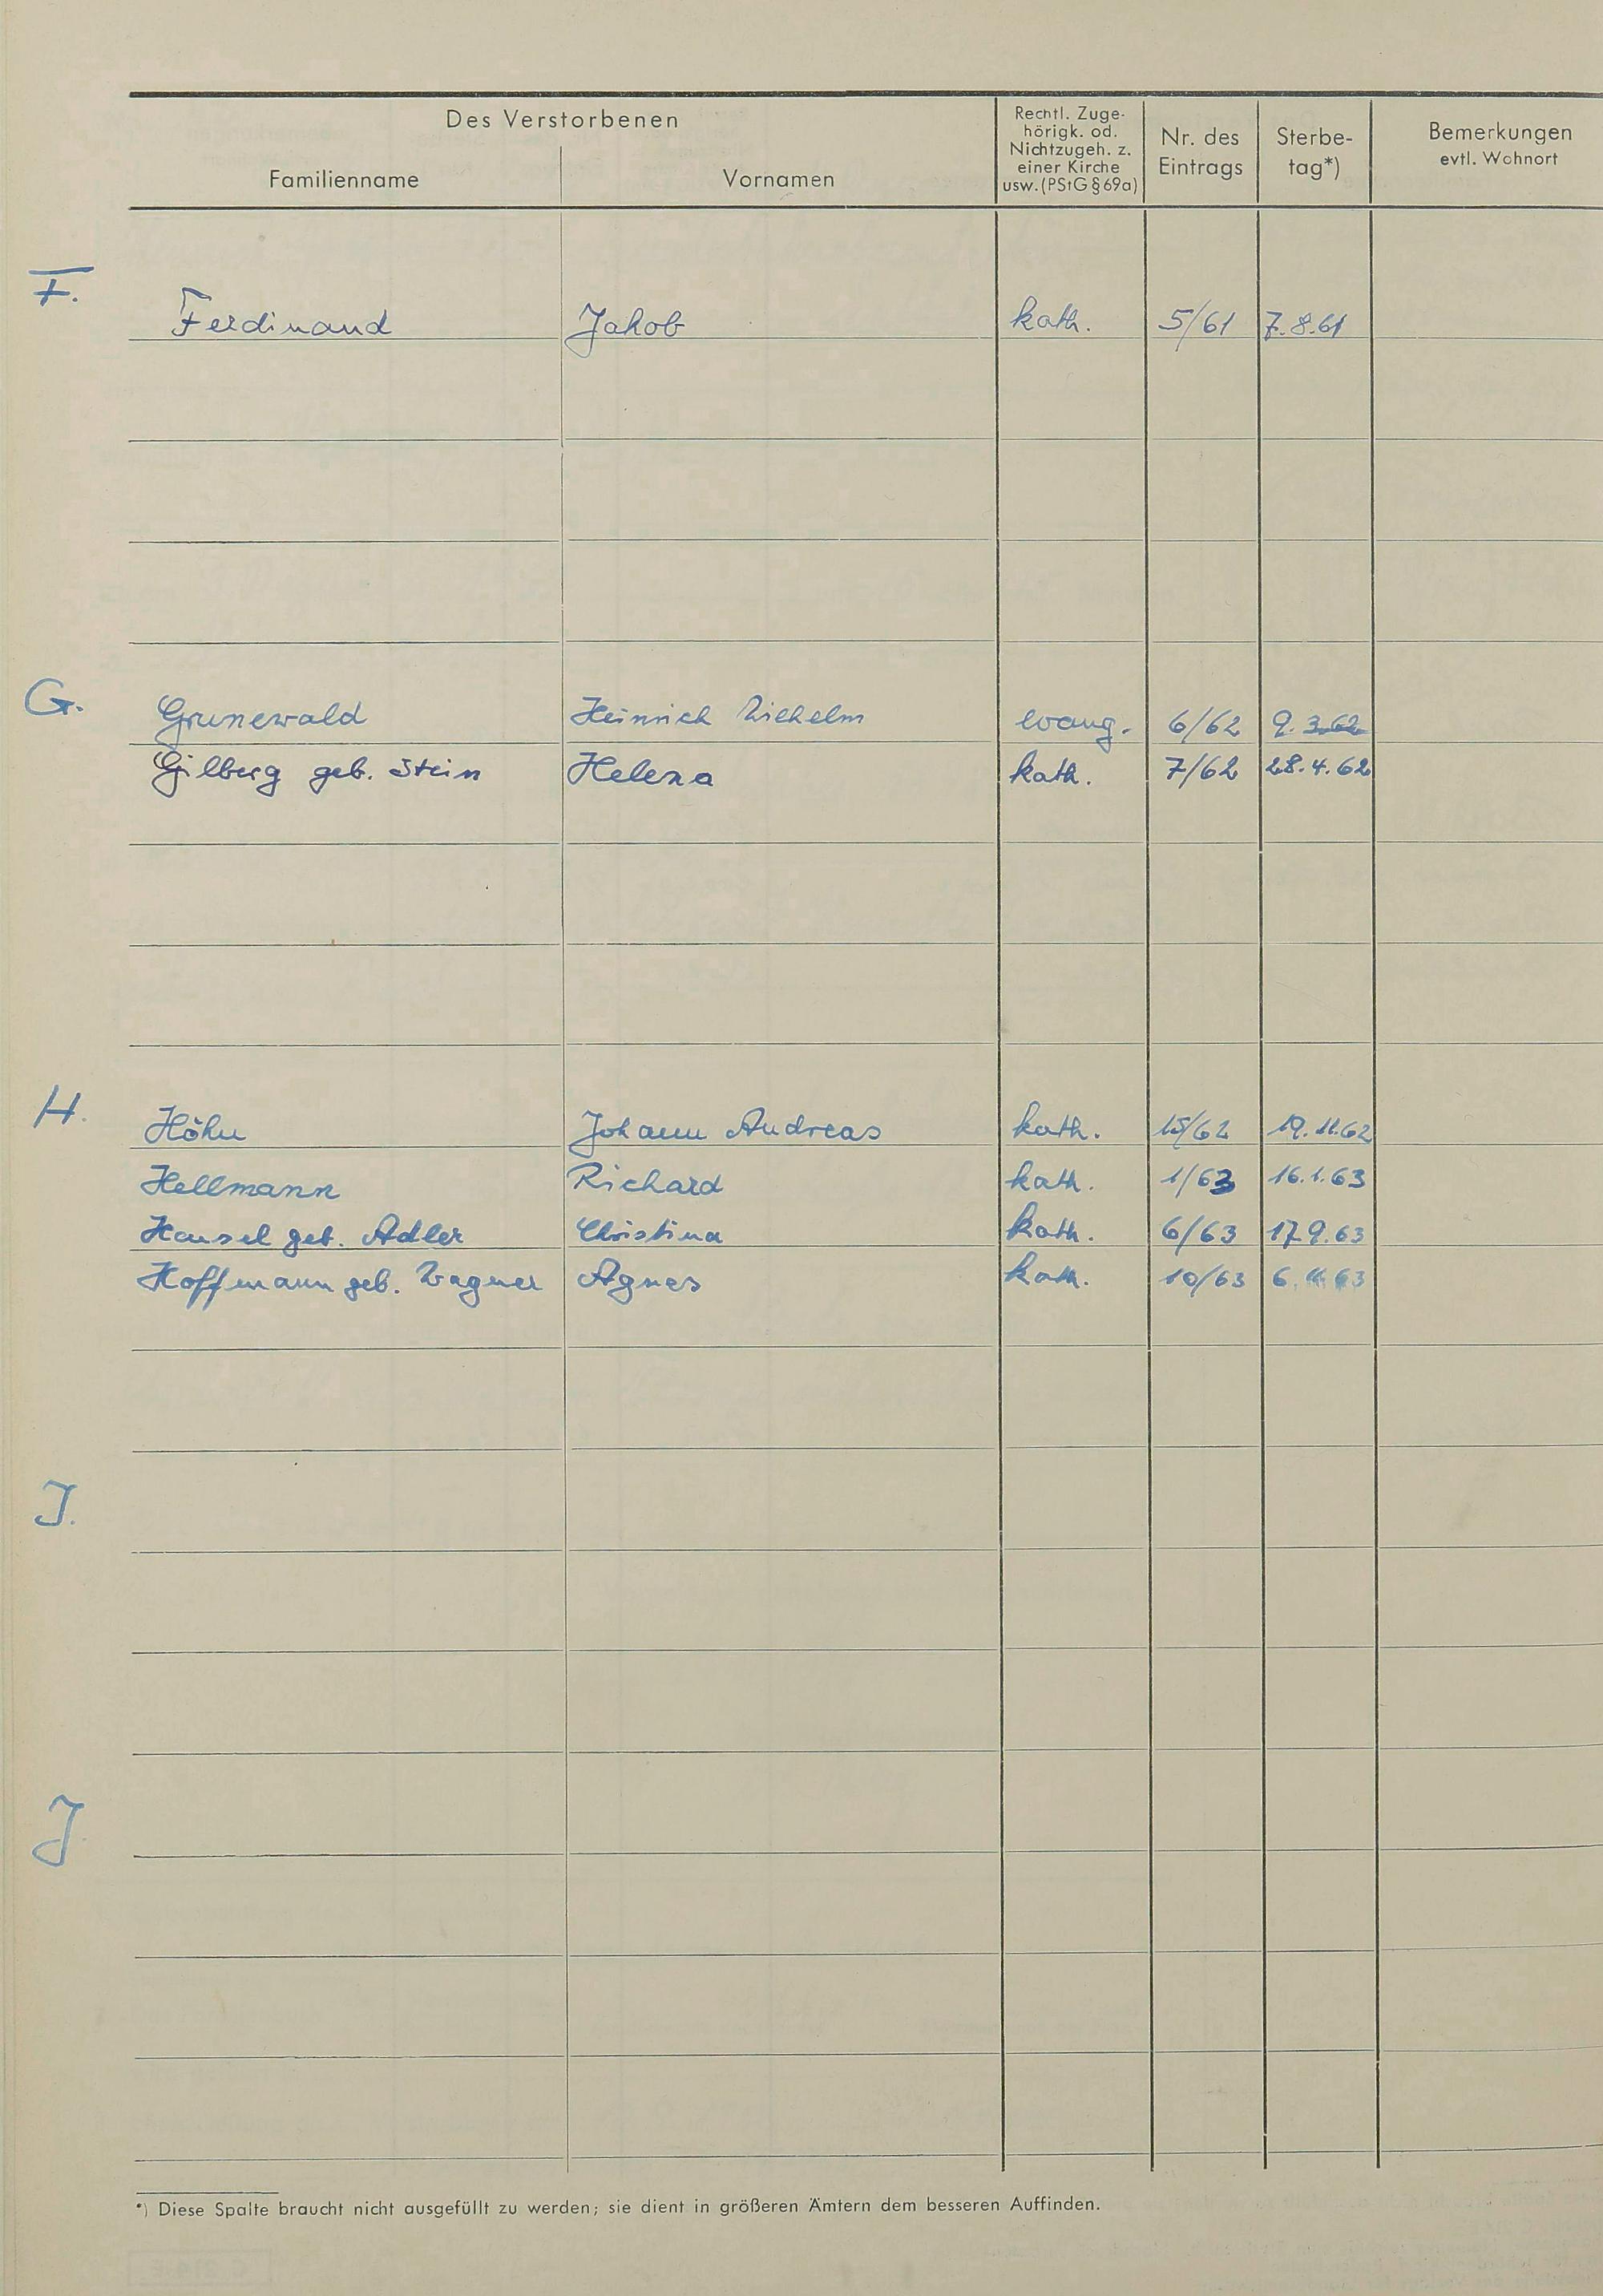 Des Verstorbenen
Familienname Vornamen
Rechtl. Zuge-
hörigk. od.
Nichtzugeh. z.
einer Kirche
usw. (PStG § 69a)
Nr. des
Eintrags
Sterbe-
tag*)
Bemerkungen
evtl. Wohnort
F.
Ferdinand Jakob kath. 5/61 7.8.61
G.
Grunewald Heinrich Wilhelm evang. 6/62 9.3.62
Gilberg geb. Stein Helena kath. 7/62 28.4.62
H.
Höhn Johann Andreas kath. 15/62 19.11.62
Hellmann Richard kath. 1/63 16.1.63
Hansel geb. Adler Christina kath. 6/63 17.9.63
Hoffmann geb. Wagner Agnes kath. 10/63 6.11.63
I.
J.
*) Diese Spalte braucht nicht ausgefüllt zu werden; sie dient in größeren Ämtern dem besseren Auffinden.